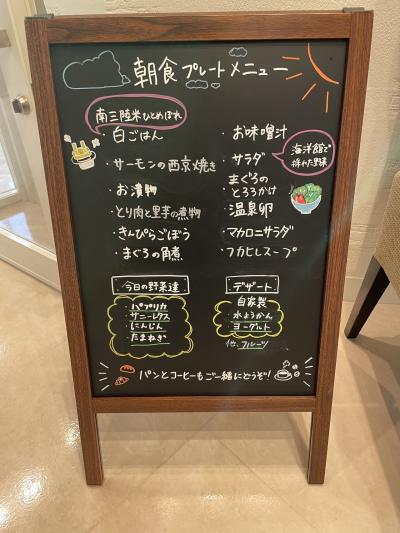 朝食プレートメニュー
南三陸米ひとめぼれ
・白ごはん
・サーモンの西京焼き
・お漬物
・とり肉と里芋の煮物
・きんぴらごぼう
・まぐろの角煮
・お味噌汁
・サラダ
海洋館で
採れた野菜
・まぐろの
とろろかけ
・温泉卵
・マカロニサラダ
・フカヒレスープ
今日の野菜達
・パプリカ
・サニーレタス
・にんじん
・たまねぎ
デザート
自家製
・水ようかん
・ヨーグルト
他、フルーツ
パンとコーヒーもご一緒にどうぞ!